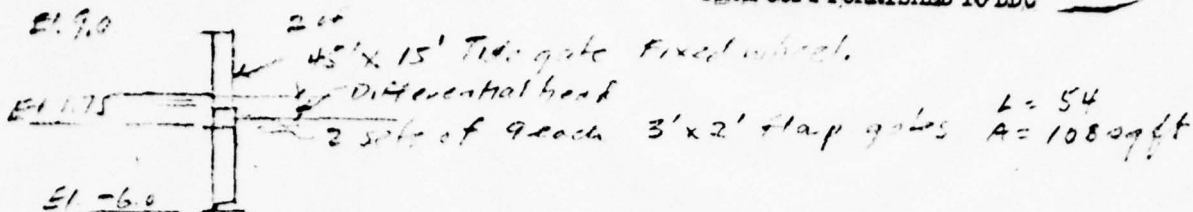 FURNISHED TO DDC
El. 9.0
2 of
45' x 15' Tide gate Fixed wheel.
El 1.75
Differential head
2 sets of 9 each 3' x 2' flap gates
L = 54
A = 108 sq ft
El. -6.0